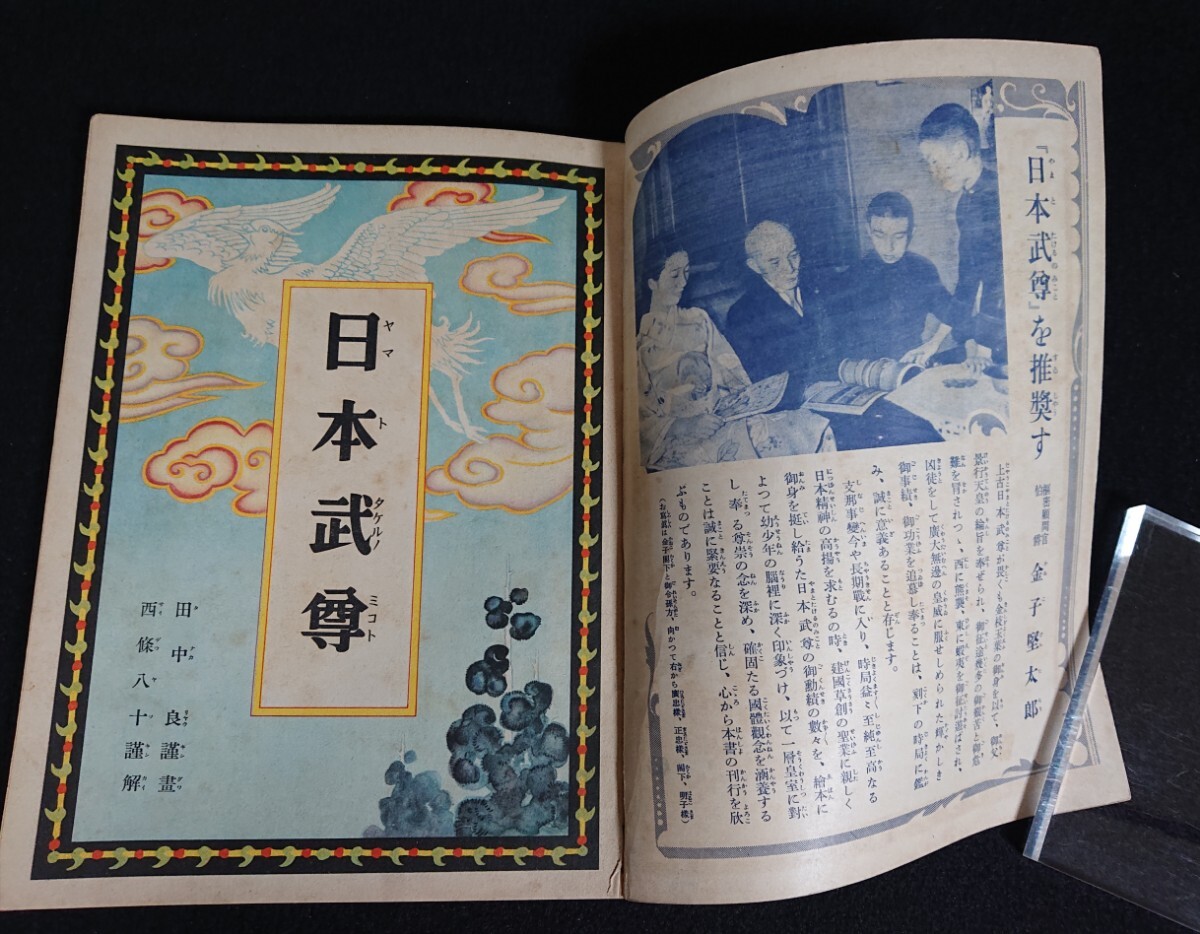 『日本武尊』を推奨す
樞密顧問官
伯爵 金子堅太郎
上古日本武尊が畏くも金枝玉葉の御身を以て、御父
景行天皇の綸旨を奉ぜられ、御征途幾多の御艱苦と御危
難を冒されつゝ、西に熊襲、東に蝦夷を御征討遊ばされ、
兇徒をして廣大無邊の皇威に服せしめられた輝かしき
御事績、御功業を追慕し奉ることは、刻下の時局に鑑
み、誠に意義あることと存じます。
支那事變今や長期戰に入り、時局益々至純至高なる
日本精神の高揚を求むるの時、建國草創の聖業に親しく
御身を挺し給うた日本武尊の御勳績の數々を、繪本に
よつて幼少年の腦裡に深く印象づけ、以て一層皇室に對
し奉る尊崇の念を深め、確固たる國體觀念を涵養する
ことは誠に緊要なることと信じ、心から本書の刊行を欣
ぶものであります。
(お寫眞は金子閣下と御令孫方、向かつて右から廣忠樣、正忠樣、閣下、明子樣)
日本武尊
ヤマトタケルノミコト
田中良謹畫
西條八十謹解